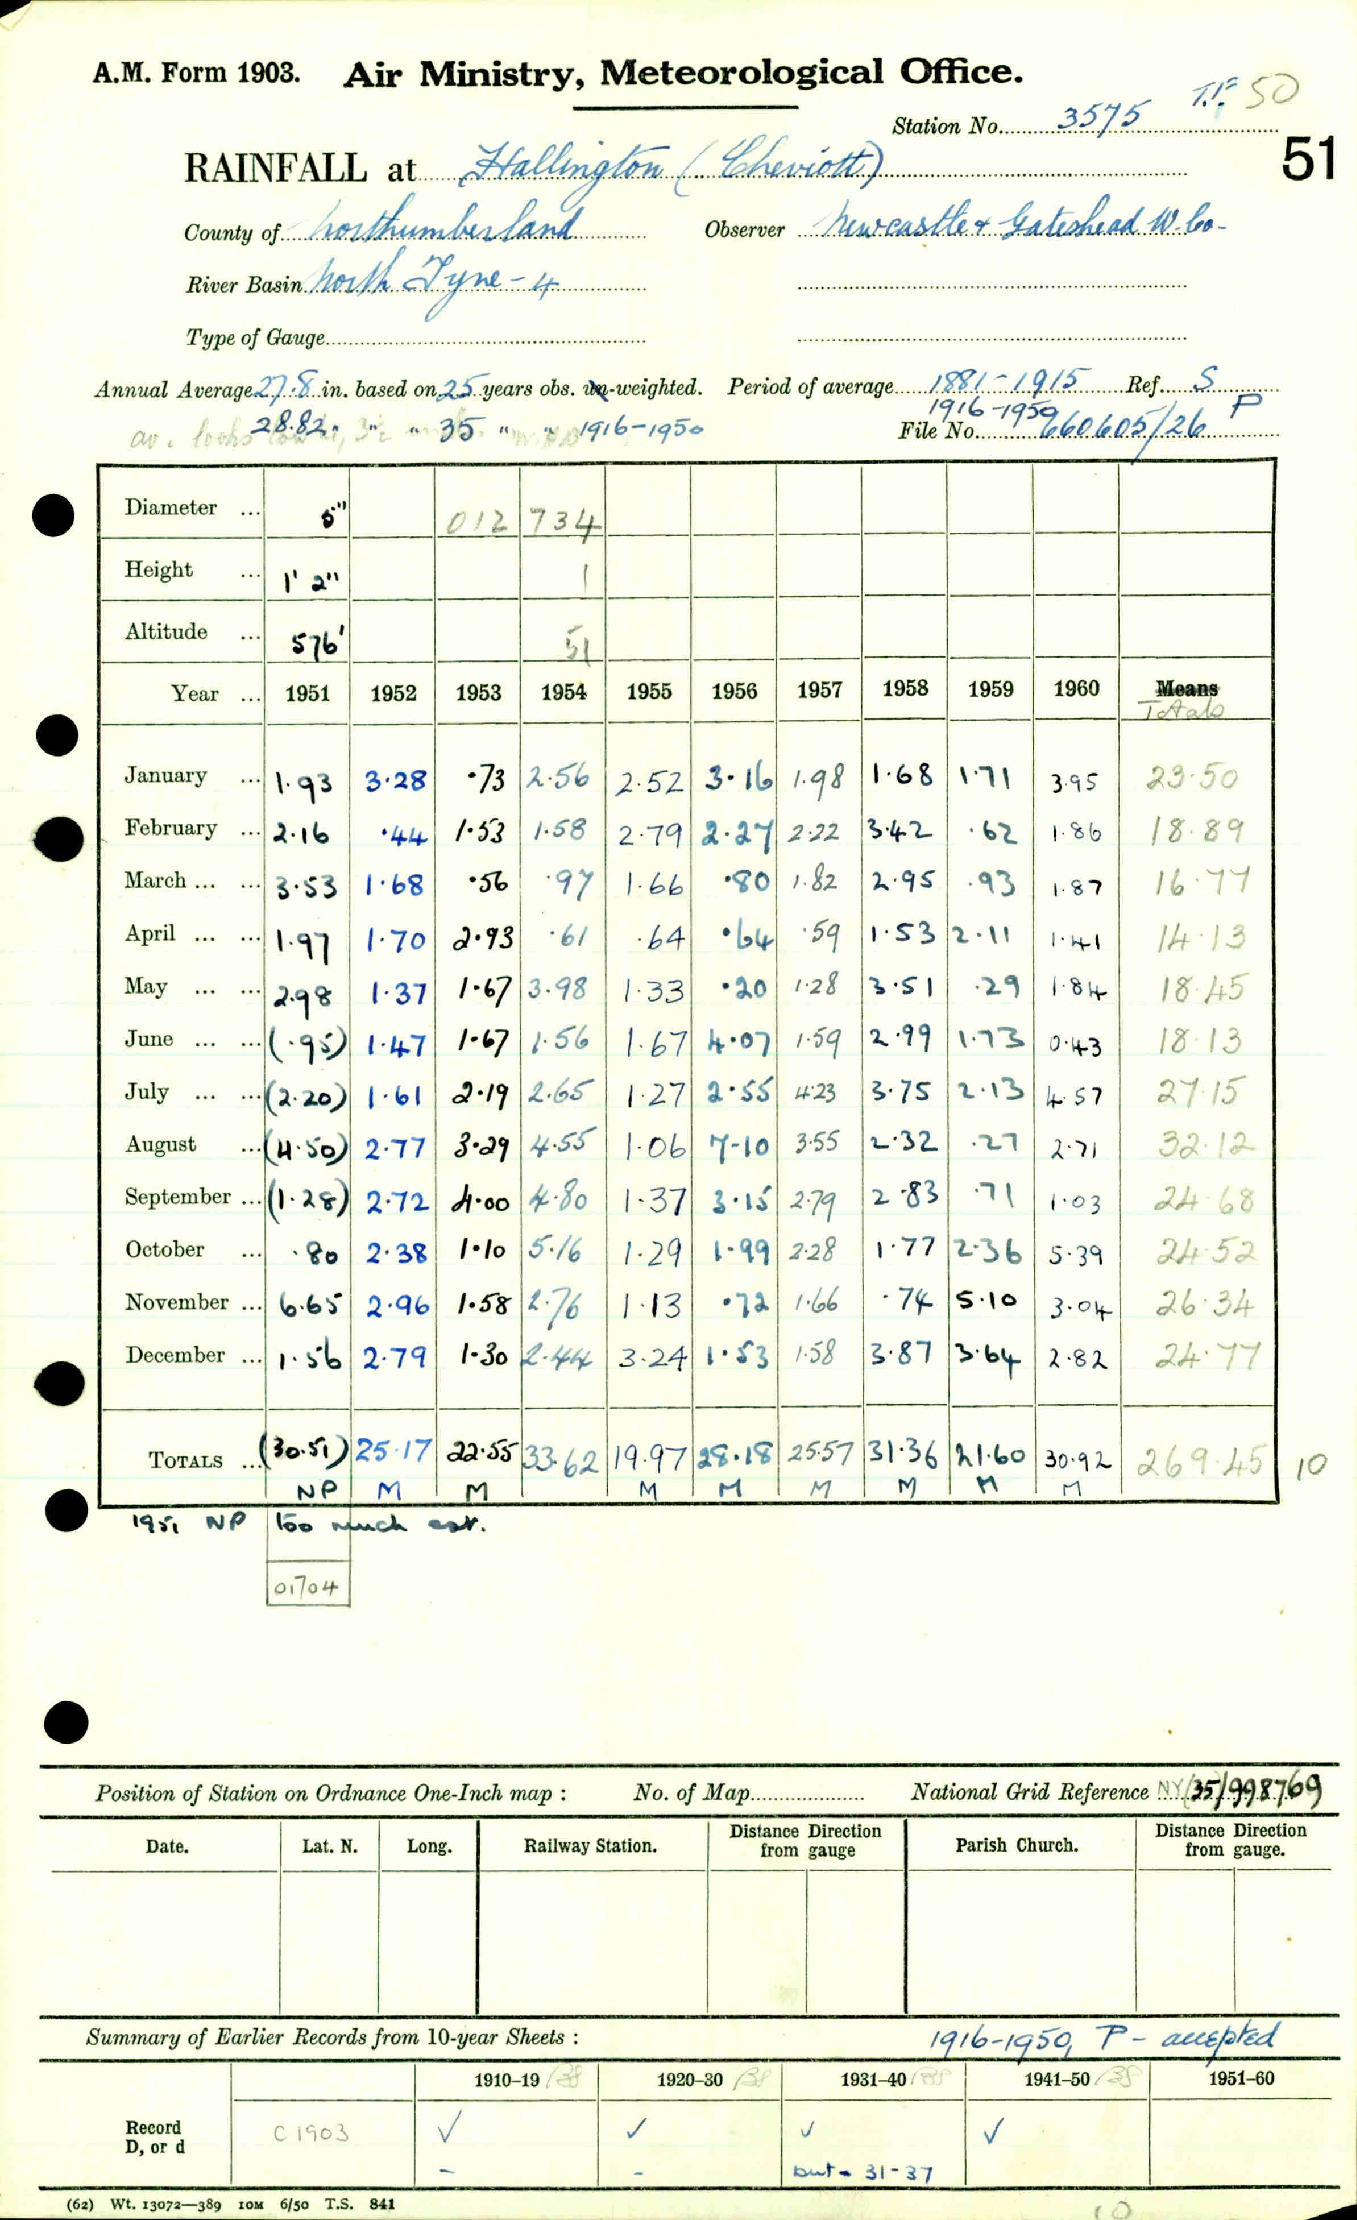 A.M. Form 1903. Air Ministry, Meteorological Office.
T.F. 50
Station No. 3575
51
RAINFALL at Hallington (Cheviott)
County of Northumberland Observer Newcastle & Gateshead W. Co-
River Basin North Tyne - 4
Type of Gauge
Annual Average 27.8 in. based on 25 years obs. un-weighted. Period of average 1881-1915 Ref. S
28.82 " " " 35 " " 1916-1950 1916-1950 P
av. looks File No. 660605/26
Diameter ... 5" 012 734
Height ... 1' 2" 1
Altitude ... 576' 51
Year ... 1951 1952 1953 1954 1955 1956 1957 1958 1959 1960 Means
Totals
January ... 1.93 3.28 .73 2.56 2.52 3.16 1.98 1.68 1.71 3.95 23.50
February ... 2.16 .44 1.53 1.58 2.79 2.27 2.22 3.42 .62 1.86 18.89
March ... ... 3.53 1.68 .56 .97 1.66 .80 1.82 2.95 .93 1.87 16.77
April ... ... 1.97 1.70 2.93 .61 .64 .64 .59 1.53 2.11 1.41 14.13
May ... ... 2.98 1.37 1.67 3.98 1.33 .20 1.28 3.51 .29 1.84 18.45
June ... ... (.95) 1.47 1.67 1.56 1.67 4.07 1.59 2.99 1.73 0.43 18.13
July ... ... (2.20) 1.61 2.19 2.65 1.27 2.55 4.23 3.75 2.13 4.57 27.15
August ... (4.50) 2.77 3.29 4.55 1.06 7.10 3.55 2.32 .27 2.71 32.12
September ... (1.28) 2.72 4.00 4.80 1.37 3.15 2.79 2.83 .71 1.03 24.68
October ... .80 2.38 1.10 5.16 1.29 1.99 2.28 1.77 2.36 5.39 24.52
November ... 6.65 2.96 1.58 2.76 1.13 .72 1.66 .74 5.10 3.04 26.34
December ... 1.56 2.79 1.30 2.44 3.24 1.53 1.58 3.87 3.64 2.82 24.77
TOTALS ... (30.51) 25.17 22.55 33.62 19.97 28.18 25.57 31.36 21.60 30.92 269.45 10
NP M M M M M M M M
1951 NP too much est.
01704
Position of Station on Ordnance One-Inch map : No. of Map National Grid Reference NY (35)/998769
Date. Lat. N. Long. Railway Station. Distance Direction from gauge Parish Church. Distance Direction from gauge.
Summary of Earlier Records from 10-year Sheets : 1916-1950, P - accepted
1910-19 1920-30 1931-40 1941-50 1951-60
Record D, or d C1903 ✓ ✓ ✓ ✓
- - but - 31-37
(62) Wt. 13072—389 10M 6/50 T.S. 841
10